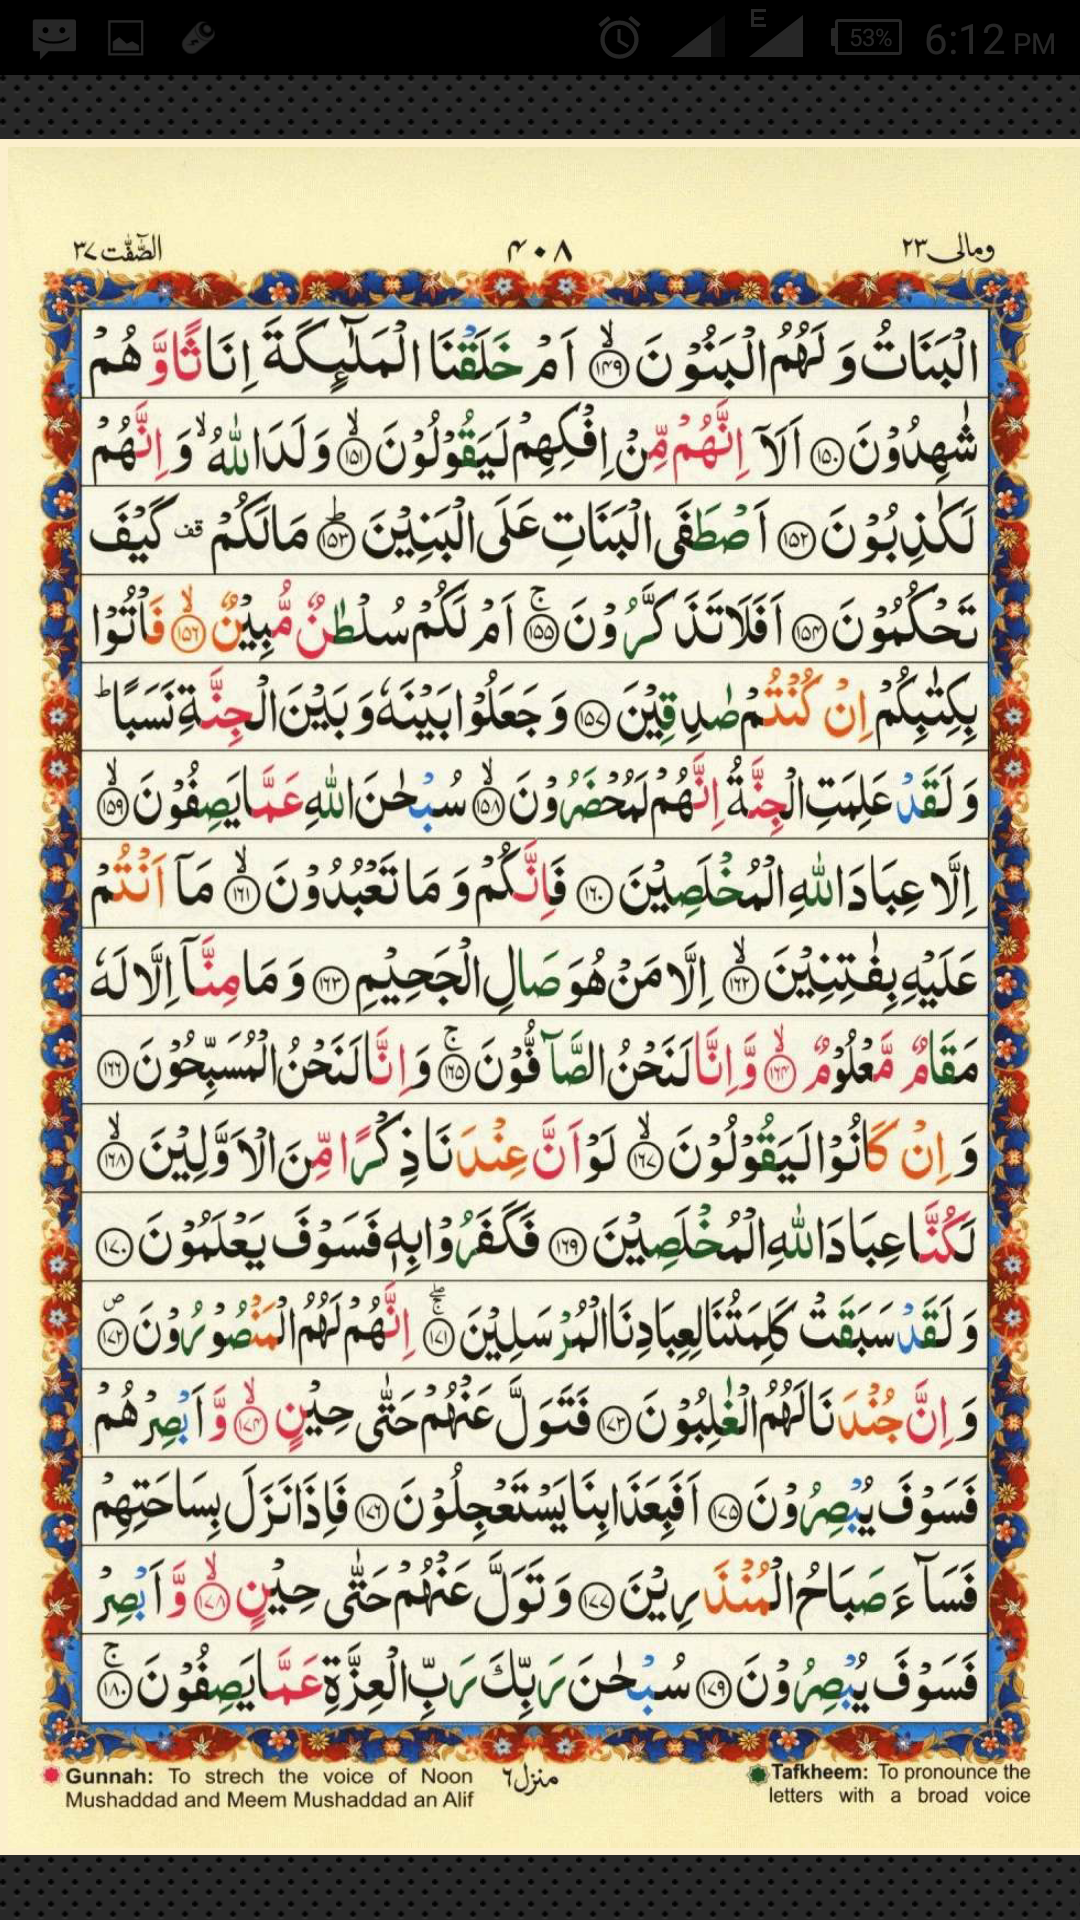 53% 6:12 PM
E
ومالی ۲۳
۴۰۸
الصّٰٓفّٰت ۳۷
الْبَنَاتُ وَلَهُمُ الْبَنُوْنَ ۙ‏﴿۱۴۹﴾ اَمْ خَلَقْنَا الْمَلٰٓئِكَةَ اِنَاثًا وَّهُمْ
شٰهِدُوْنَ ﴿۱۵۰﴾ اَلَاۤ اِنَّهُمْ مِّنْ اِفْكِهِمْ لَيَقُوْلُوْنَ ۙ‏﴿۱۵۱﴾ وَلَدَ اللّٰهُ ۙ وَاِنَّهُمْ
لَكٰذِبُوْنَ ﴿۱۵۲﴾ اَصْطَفَى الْبَنَاتِ عَلَى الْبَنِيْنَ ؕ‏﴿۱۵۳﴾ مَا لَكُمْ قف كَيْفَ
تَحْكُمُوْنَ ﴿۱۵۴﴾ اَفَلَا تَذَكَّرُوْنَ ۚ‏﴿۱۵۵﴾ اَمْ لَكُمْ سُلْطٰنٌ مُّبِيْنٌ ۙ‏﴿۱۵۶﴾ فَاْتُوْا
بِكِتٰبِكُمْ اِنْ كُنْتُمْ صٰدِقِيْنَ ﴿۱۵۷﴾ وَجَعَلُوْا بَيْنَهٗ وَبَيْنَ الْجِنَّةِ نَسَبًا ؕ
وَلَقَدْ عَلِمَتِ الْجِنَّةُ اِنَّهُمْ لَمُحْضَرُوْنَ ۙ‏﴿۱۵۸﴾ سُبْحٰنَ اللّٰهِ عَمَّا يَصِفُوْنَ ۙ‏﴿۱۵۹﴾
اِلَّا عِبَادَ اللّٰهِ الْمُخْلَصِيْنَ ﴿۱۶۰﴾ فَاِنَّكُمْ وَمَا تَعْبُدُوْنَ ۙ‏﴿۱۶۱﴾ مَاۤ اَنْتُمْ
عَلَيْهِ بِفٰتِنِيْنَ ۙ‏﴿۱۶۲﴾ اِلَّا مَنْ هُوَ صَالِ الْجَحِيْمِ ﴿۱۶۳﴾ وَمَا مِنَّاۤ اِلَّا لَهٗ
مَقَامٌ مَّعْلُوْمٌ ۙ‏﴿۱۶۴﴾ وَّاِنَّا لَنَحْنُ الصَّآفُّوْنَ ۚ‏﴿۱۶۵﴾ وَاِنَّا لَنَحْنُ الْمُسَبِّحُوْنَ ﴿۱۶۶﴾
وَاِنْ كَانُوْا لَيَقُوْلُوْنَ ۙ‏﴿۱۶۷﴾ لَوْ اَنَّ عِنْدَنَا ذِكْرًا مِّنَ الْاَوَّلِيْنَ ۙ‏﴿۱۶۸﴾
لَكُنَّا عِبَادَ اللّٰهِ الْمُخْلَصِيْنَ ﴿۱۶۹﴾ فَكَفَرُوْا بِهٖ فَسَوْفَ يَعْلَمُوْنَ ﴿۱۷۰﴾
وَلَقَدْ سَبَقَتْ كَلِمَتُنَا لِعِبَادِنَا الْمُرْسَلِيْنَ ۚۖ‏﴿۱۷۱﴾ اِنَّهُمْ لَهُمُ الْمَنْصُوْرُوْنَ ص‏﴿۱۷۲﴾
وَاِنَّ جُنْدَنَا لَهُمُ الْغٰلِبُوْنَ ﴿۱۷۳﴾ فَتَوَلَّ عَنْهُمْ حَتّٰى حِيْنٍ ۙ‏﴿۱۷۴﴾ وَّاَبْصِرْهُمْ
فَسَوْفَ يُبْصِرُوْنَ ﴿۱۷۵﴾ اَفَبِعَذَابِنَا يَسْتَعْجِلُوْنَ ﴿۱۷۶﴾ فَاِذَا نَزَلَ بِسَاحَتِهِمْ
فَسَآءَ صَبَاحُ الْمُنْذَرِيْنَ ﴿۱۷۷﴾ وَتَوَلَّ عَنْهُمْ حَتّٰى حِيْنٍ ۙ‏﴿۱۷۸﴾ وَّاَبْصِرْ
فَسَوْفَ يُبْصِرُوْنَ ﴿۱۷۹﴾ سُبْحٰنَ رَبِّكَ رَبِّ الْعِزَّةِ عَمَّا يَصِفُوْنَ ۚ‏﴿۱۸۰﴾
Gunnah: To strech the voice of Noon
Mushaddad and Meem Mushaddad an Alif
منزل ۶
Tafkheem: To pronounce the
letters with a broad voice